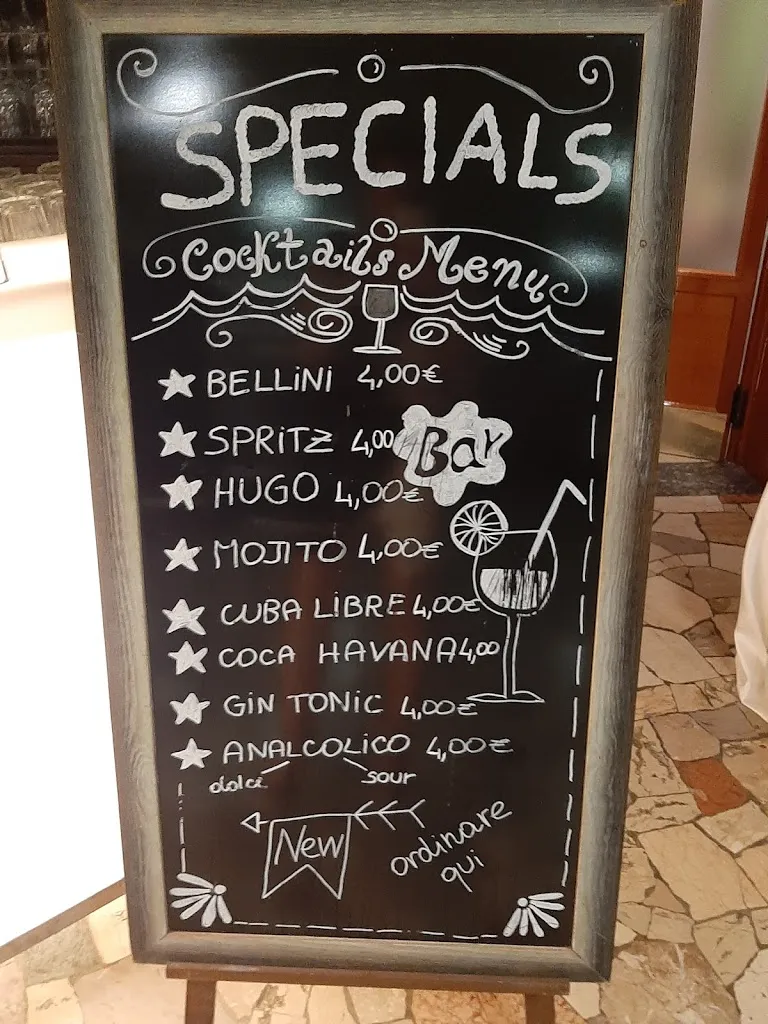 SPECIALS
Cocktails Menu
BELLINI 4,00€
SPRITZ 4,00
Bar
HUGO 4,00€
MOJITO 4,00€
CUBA LIBRE 4,00€
COCA HAVANA 4,00
GIN TONIC 4,00€
ANALCOLICO 4,00€
dolci sour
New
ordinare
qui